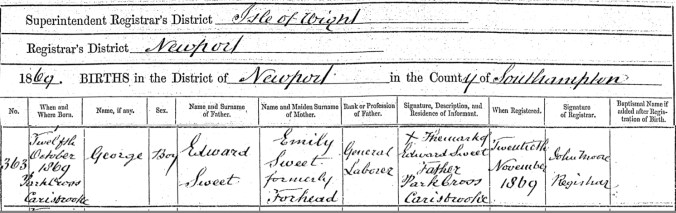 Superintendent Registrar's District Isle of Wight
Registrar's District Newport
1869. BIRTHS in the District of Newport in the County of Southampton
No. When and Where Born. Name, if any. Sex. Name and Surname of Father. Name and Maiden Surname of Mother. Rank or Profession of Father. Signature, Description, and Residence of Informant. When Registered. Signature of Registrar. Baptismal Name if added after Registration of Birth.
363 Twelfth October 1869 Park Cross Carisbrooke George Boy Edward Sweet Emily Sweet formerly Forhead General Laborer X The mark of Edward Sweet Father Park Cross Carisbrooke Twentieth November 1869 John Moore Registrar